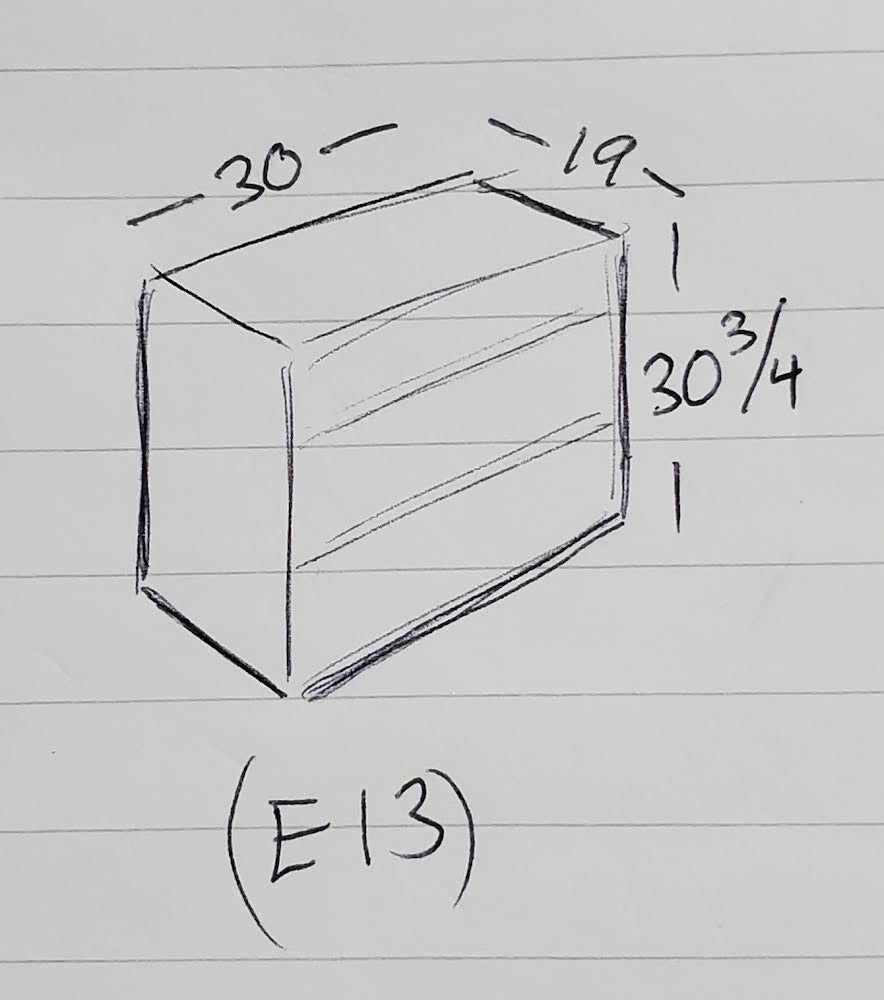 30
19
30 3/4
(E13)